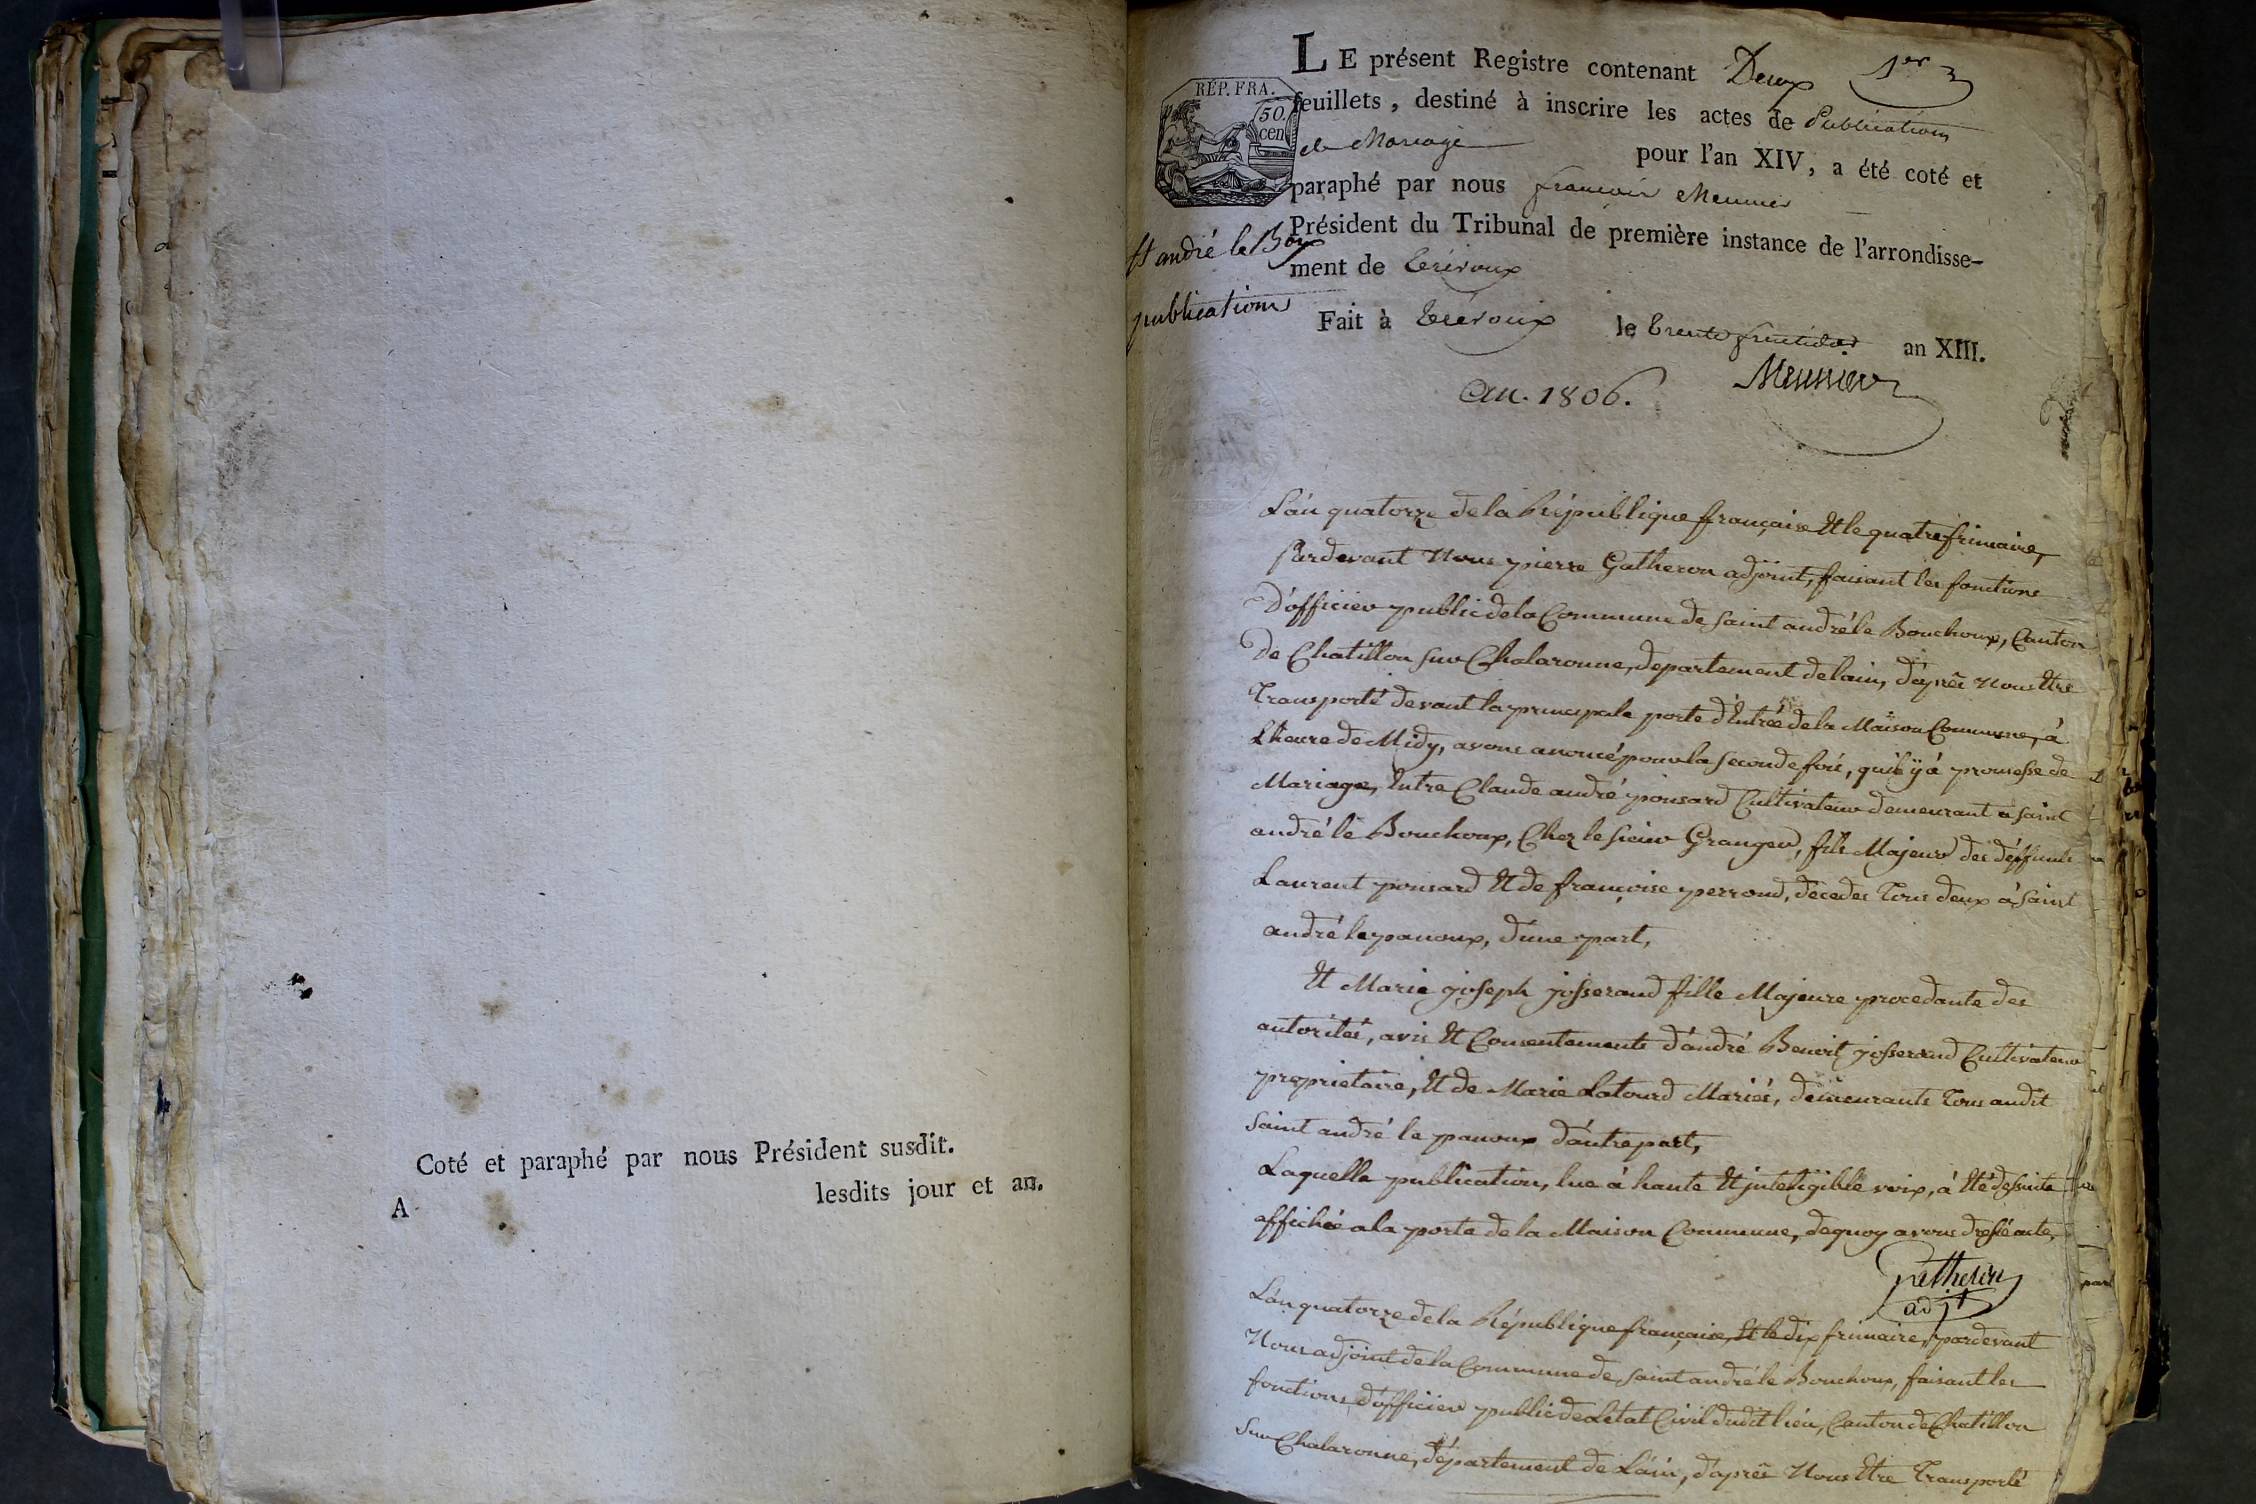 Coté et paraphé par nous Président susdit.
A lesdits jour et an.
1er
LE présent Registre contenant Deux
RÉP. FRA.
50.
cen
feuillets, destiné à inscrire les actes de Publications
de Mariage pour l'an XIV, a été coté et
paraphé par nous françois Meunier
Président du Tribunal de première instance de l'arrondisse-
ment de Trévoux
St andré le Boux
publications
Fait à Trévoux le trente fructidor an XIII.
Meunier
an. 1806.
L'an quatorze de la République française Et le quatre frimaire,
Pardevant Nous pierre Gatheron adjoint, faisant les fonctions
D'officier public de la Commune de Saint andré le Bouchoux, Canton
De Chatillon sur Chalaronne, departement de lain, d'après nous Etre
Transporté devant la principale porte d'Entrée de la Maison Commune, à
L'heure de Midy, avons anoncé pour la seconde fois, quil ÿ à promesse de
Mariage, Entre Claude andré ponsard Cultivateur demeurant a saint
andré le Bouchoux, Chez le sieur Granger, fils Majeur des deffunts
Laurent ponsard Et de françoise perroud, décedes Tous deux à saint
andré le panoux, d'une part,
Et Marie joseph josserand fille Majeure procedante des
autorités, avis Et Consentements d'andré Benoit josserand Cultivateur
proprietaire, Et de Marie Latourd Mariés, demeurants Tous audit
saint andré le panoux d'autre part,
Laquelle publication, lue à haute Et inteligible voix, à Eté de suite
affichée a la porte de la Maison Commune, de quoy avons dressé acte,
Gatheron
adjt
L'an quatorze de la République française, Et le dix frimaire, pardevant
Nous adjoint de la Commune de saint andré le Bouchoux, faisant les
fonctions d'officier public de L'etat Civil dudit lieu, Canton de Chatillon
Sur Chalaronne, département de L'ain, d'après Nous Etre Transporté